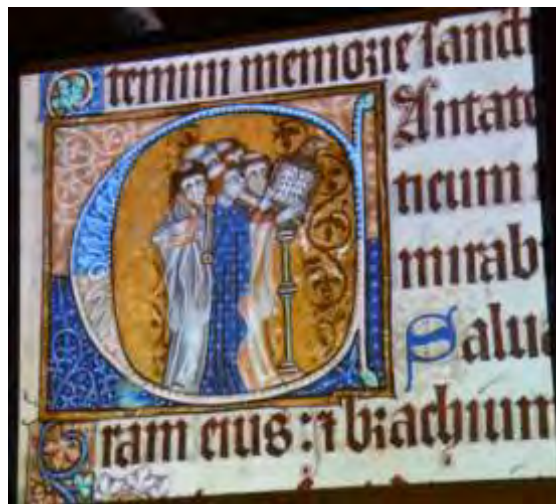 temini memorie sancti
CAntate
ticum
mirab
Salua
ram eius : & brachium